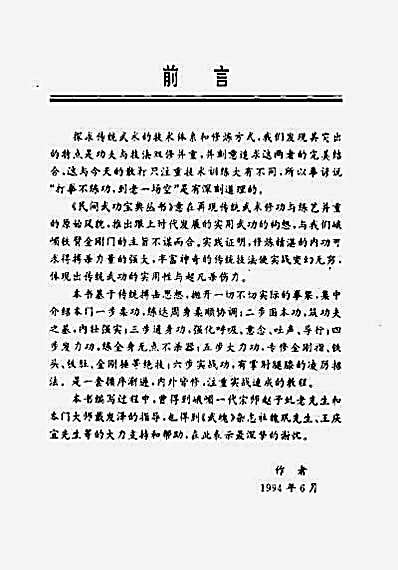 前言
探求传统武术的技术体系和修炼方式，我们发现其突出
的特点是功夫与技法双修并重，并刻意追求这两者的完美结
合，这与今天的散打只注重技术训练大有不同，所以拳谚说
“打拳不练功，到老一场空”是有深刻道理的。
《民间武功宝典丛书》意在再现传统武术修功与练艺并重
的原始风貌，推出跟上时代发展的实用武功的构想，与我们峨
嵋铁臂金刚门的主旨不谋而合。实践证明，修炼精湛的内功可
求得搏击力量的强大，丰富神奇的传统技法使实战变幻无穷，
体现出传统武功的实用性与超凡杀伤力。
本书基于传统搏击思想，抛开一切不切实际的拳架，集中
介绍本门一步柔功，练达周身柔顺协调；二步固本功，筑功夫
之基，内壮强实；三步通身功，强化呼吸、意念、吐声、导行；四
步发力功，练全身无点不杀器；五步大力功，专修金刚指、铁
头、铁肚、金刚捶等绝技；六步实战功，有掌肘腿膝的凌厉招
法。是一套循序渐进，内外皆修，注重实战速成的教程。
本书编写过程中，曾得到峨嵋一代宗师赵子虬老先生和
本门大师最发泽的指导，也得到《武魂》杂志社魏珉先生、王庆
宜先生等的大力支持和帮助，在此表示最深挚的谢忱。
作者
1994年6月